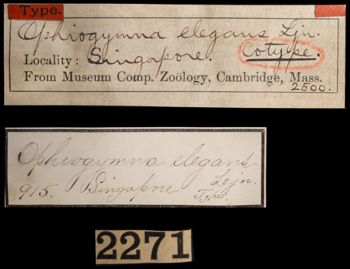 Type.
Ophiogymna elegans Ljn.
Locality: Singapore. Cotype.
From Museum Comp. Zoölogy, Cambridge, Mass.
2500.
Ophiogymna elegans
915. Singapore Ljn.
Type.
2271